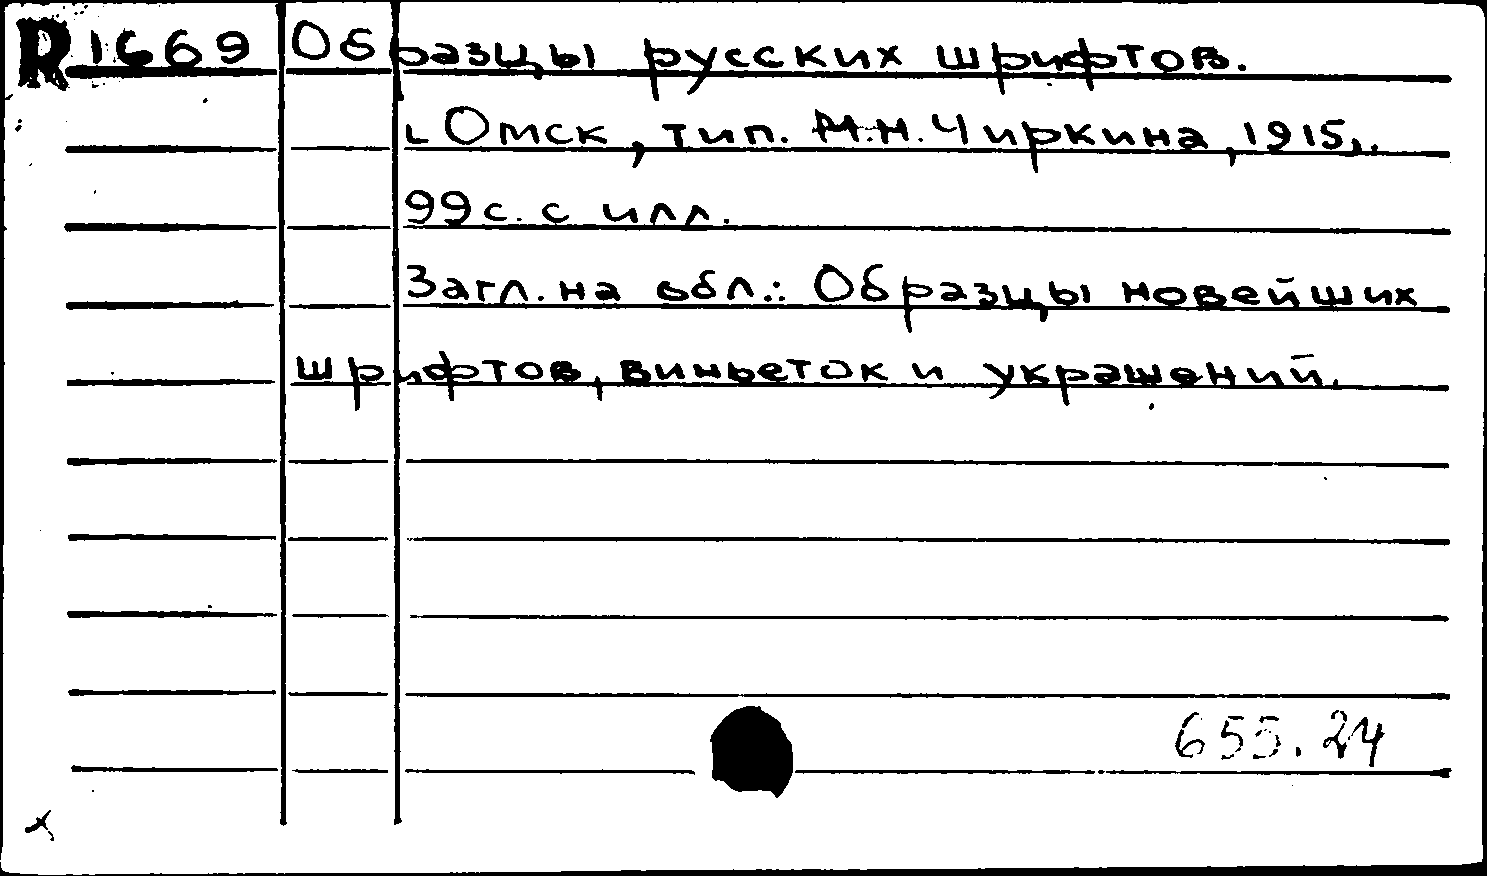 R 1669 Образцы русских шрифтов.
Омск, тип. М.Н. Чиркина, 1915.
99 с. с илл.
Загл. на обл.: Образцы новейших
шрифтов, виньеток и украшений.
655.24